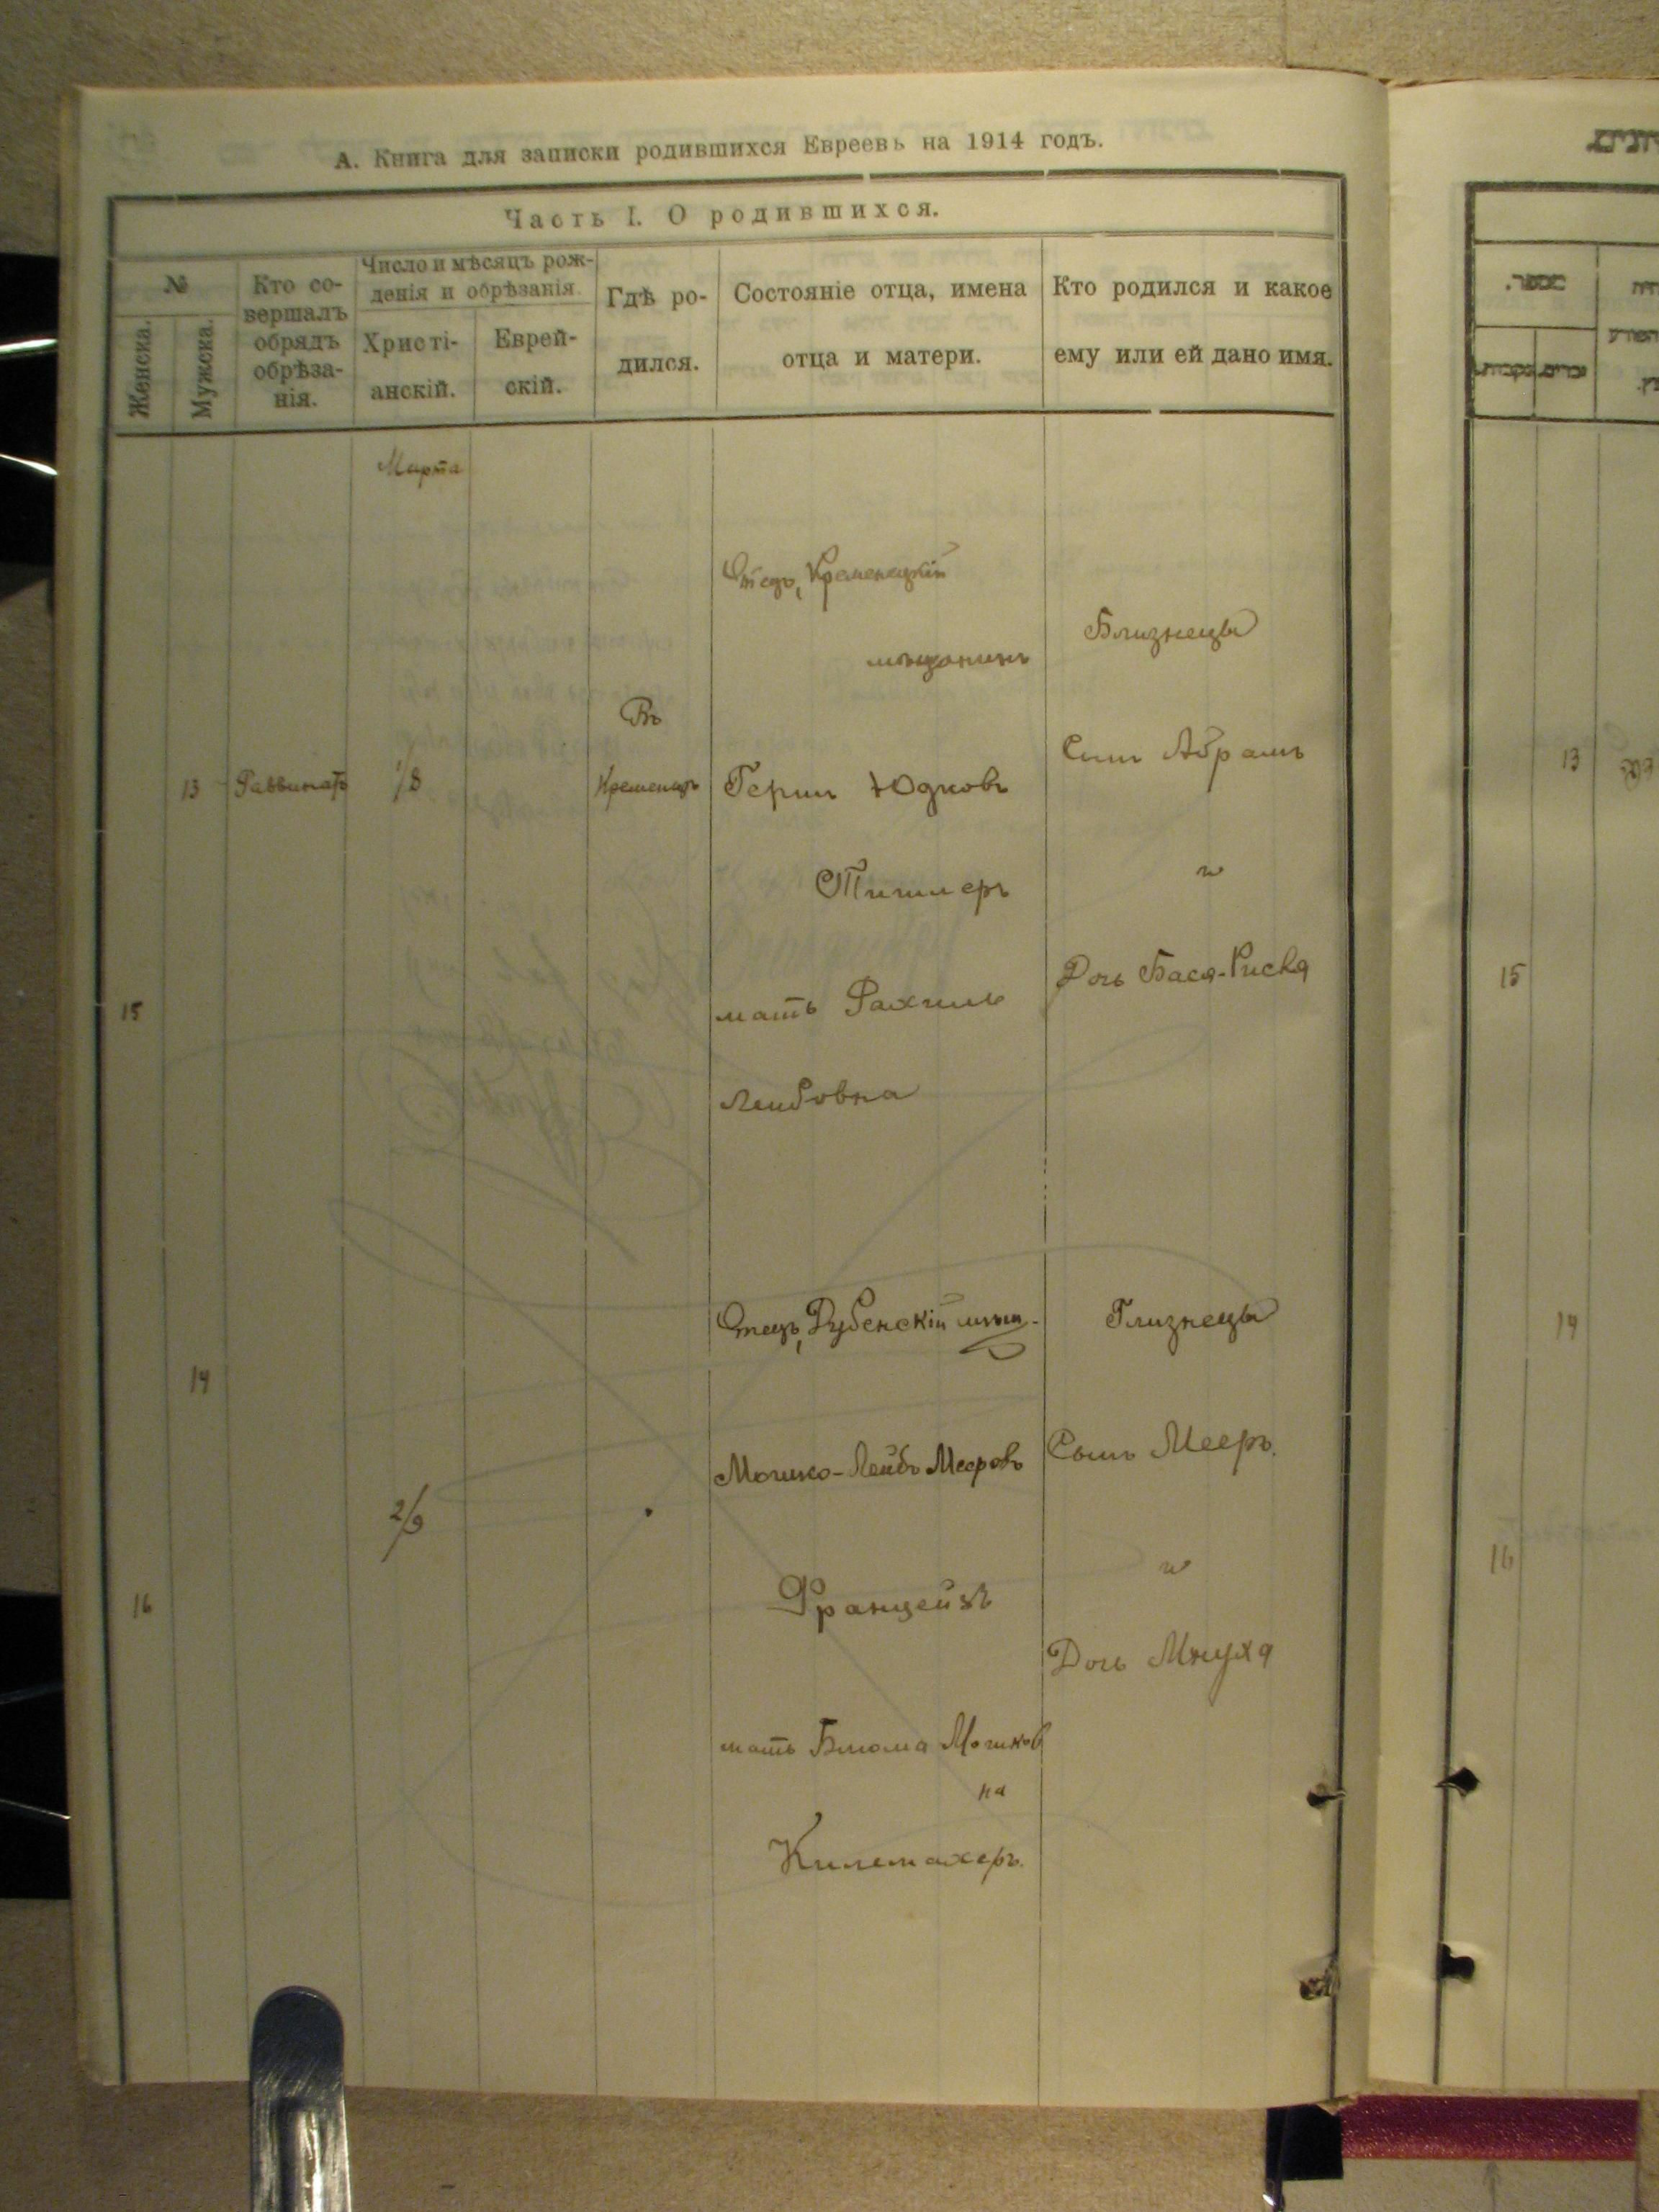 А. Книга для записки родившихся Евреевъ на 1914 годъ.
Часть I. О родившихся.
№
Женска.
Мужска.
Кто со-
вершалъ
обрядъ
обрѣза-
нія.
Число и мѣсяцъ рож-
денія и обрѣзанія.
Христі-
анскій.
Еврей-
скій.
Гдѣ ро-
дился.
Состояніе отца, имена
отца и матери.
Кто родился и какое
ему или ей дано имя.
Марта
13
15
1/8
Въ
Кременцѣ
Отецъ, Кременецкій
мѣщанинъ
Гершъ Юдковъ
Тишлеръ
мать Рахиль
Лейбовна
Близнецы
Сынъ Абрамъ
и
Дочь Бася-Ривка
14
16
2/9
Отецъ, Дубенскій мѣщ.
Мошко-Лейбъ Мееровъ
мать Блюма Мошков
на
Килемахеръ.
Близнецы
Сынъ Мееръ.
и
Дочь Мнуха
13
15
14
16